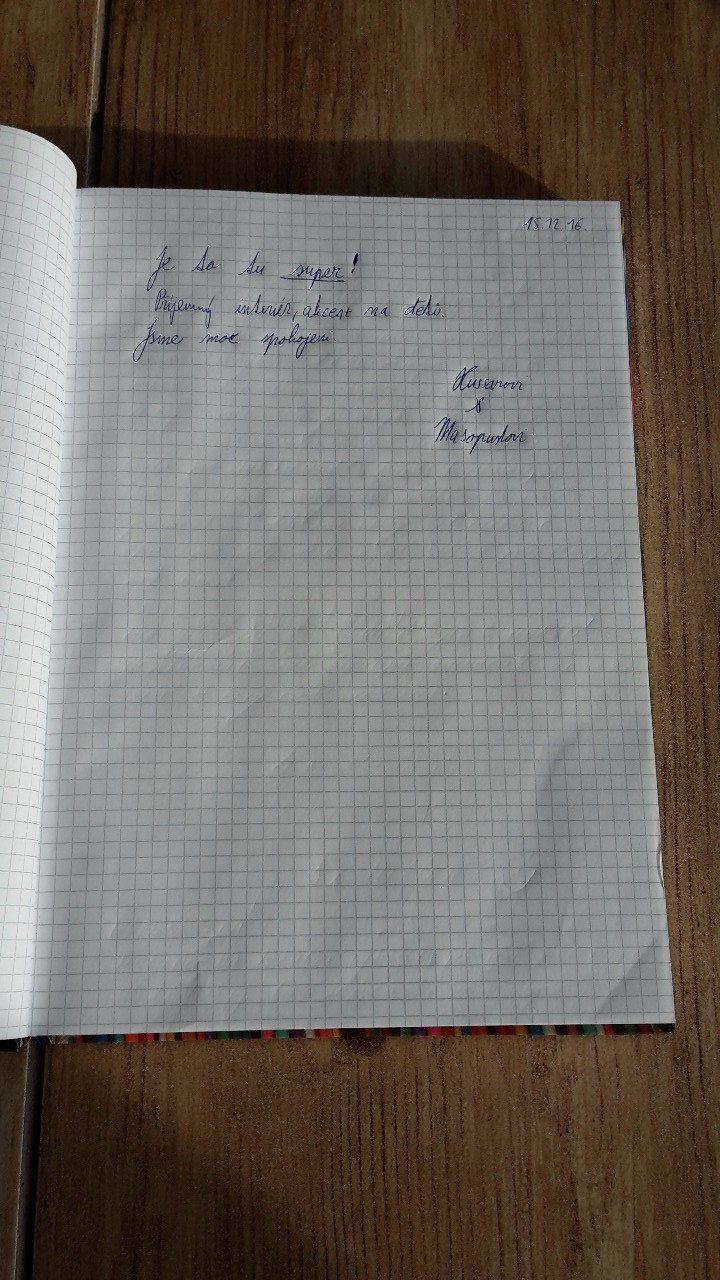 15.12.16
Je to tu super!
Příjemný interiér, akcent na děti.
Jsme moc spokojeni.
&
Masopustovi